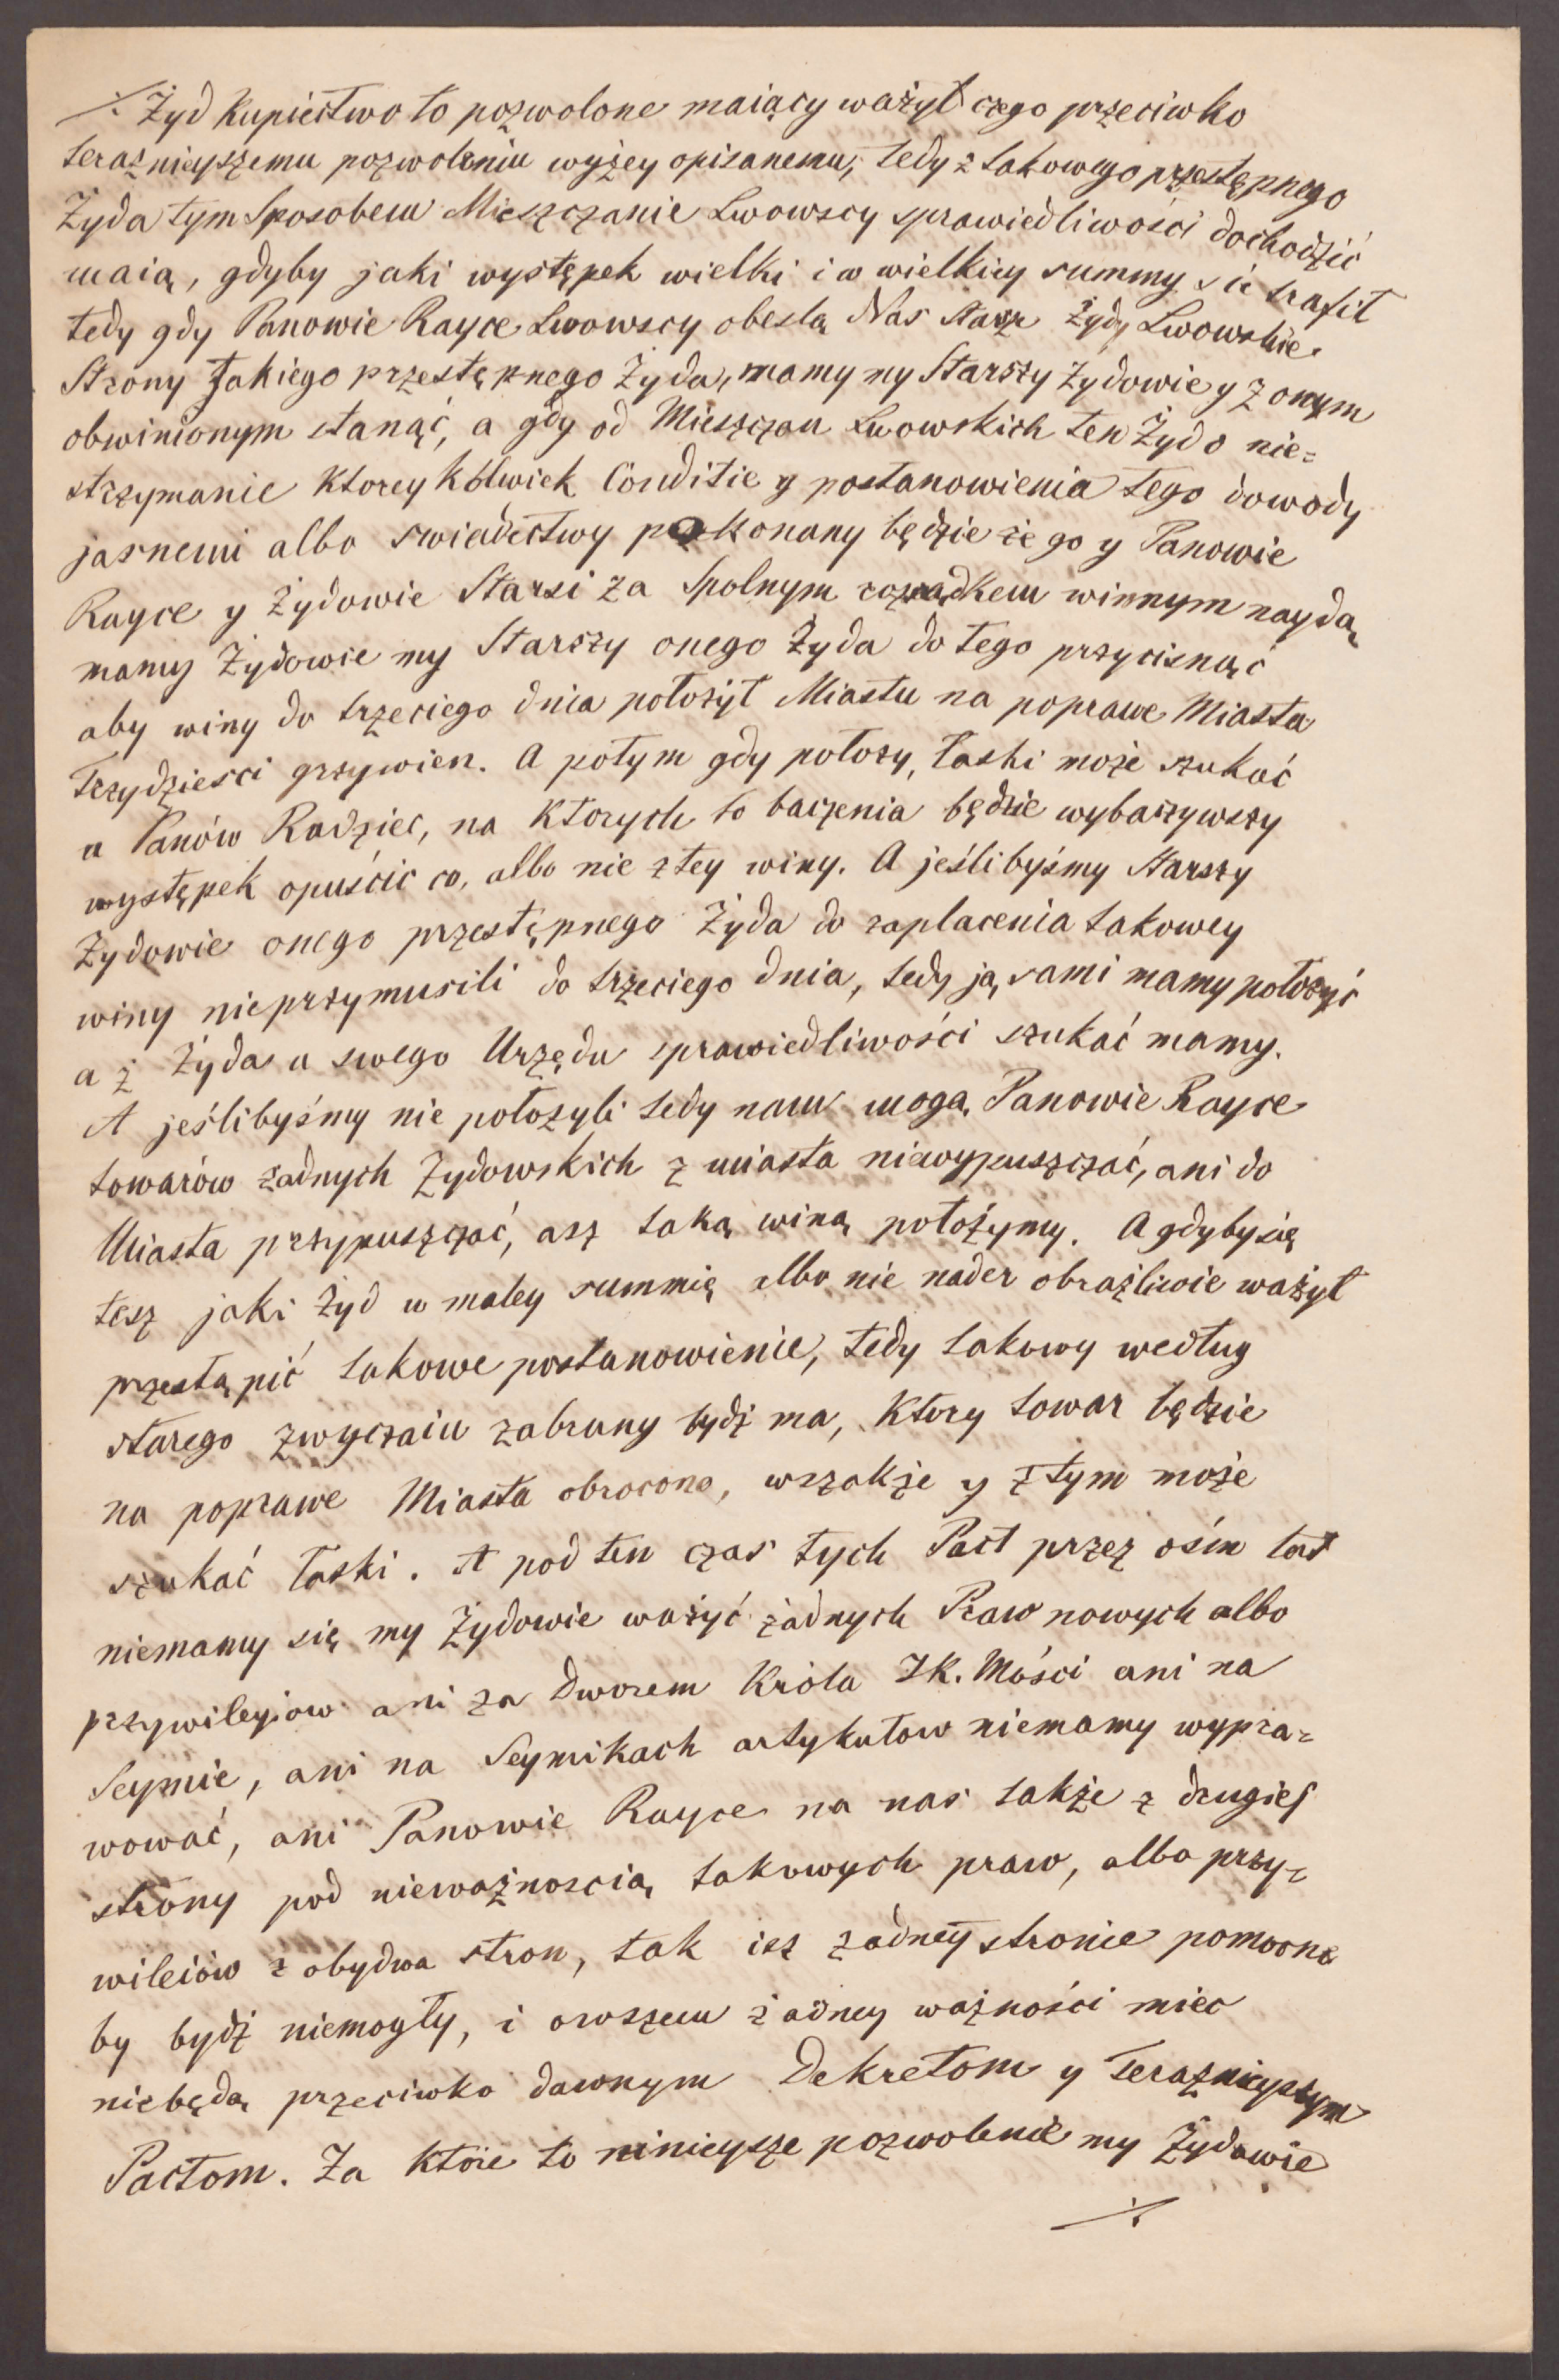 ./. Żyd Kupiectwo to pozwolone maiący ważył czego przeciwko
teraznieyszemu pozwoleniu wyżey opisanemu, tedy z takowego przestępnego
Żyda tym Sposobem Mieszczanie Lwowscy sprawiedliwości dochodzić
maią, gdyby jaki występek wielki i w wielkiey summy się trafił
tedy gdy Panowie Rayce Lwowscy obeslą Nas Starsze Żydy Lwowskie
Strony Jakiego przestępnego Żyda, mamy my Starszy Żydowie y z onym
obwinionym stanąć, a gdy od Mieszczan Lwowskich ten Żyd o nie=
strzymanie Ktorey Kolwiek Conditie y postanowienia tego dowody
jasnemi albo swiadectwy pokonany będzie że go y Panowie
Rayce y Żydowie Starsi za Spolnym rozsądkem winnym naydą
mamy Żydowie my Starszy onego Żyda do tego przycisnąć
aby winy do trzeciego dnia położył Miastu na poprawe Miasta
Trzydziesci grzywien. A potym gdy położy, łaski może szukać
u Panów Radziec, na Ktorych to baczenia będzie wybaczywszy
występek opuścić co, albo nie z tey winy. A jeślibyśmy Starszy
Żydowie onego przestępnego Żyda do zaplacenia takowey
winy nieprzymusili do trzeciego dnia, tedy ją sami mamy położyć
a z Żyda u swego Urzędu sprawiedliwości szukać mamy.
A jeślibyśmy nie położyli tedy nam mogą Panowie Rayce
towarów żadnych Żydowskich z miasta niewypuszczać, ani do
Miasta przypuszczać, asz taką winą położymy. A gdyby się
tesz jaki Żyd w maley summię albo nie nader obraźliwie ważył
przestąpić takowe postanowienie, tedy takowy według
starego zwyczaiu zabrany bydź ma, Ktory towar będzie
na poprawe Miasta obrocono, wszakże y z tym może
szukać łaski. A pod ten czas tych Pact przez ośm lat
niemamy się my Żydowie ważyć żadnych Praw nowych albo
przywileyjow ani za Dworem Króla JK. Mości ani na
Seymie, ani na Seymikach artykułow niemamy wypra=
wować, ani Panowie Rayce na nas także z drugiej
strony pod nieważnoscią takowych praw, albo przy=
wileiów z obydwa stron, tak isz żadney stronie pomocne
by bydź niemogły, i owszem żadney ważności miec
niebędą przeciwko dawnym Dekretom y Teraznieyszym
Pactom. Za Które to ninieysze pozwolenie my Żydowie
./.